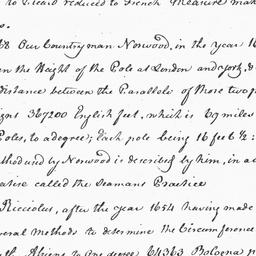 to Picard reduced to French Measure mak
s.
68 Our Countryman Norwood, in the year 16
en the Height of the Pole at London and york, &
Distance between the Parallels of those two p
igns 367200 English feet, which is 69 miles
Poles, to a degree; Each pole being 16 feet ½:
thod used by Norwood is described by him, in a
atise called the Seamans Practice
Ricciolus, after the year 1654 having made
veral Methods to determine the Circumference
th, Assigns to one degree 64363 Bologna p